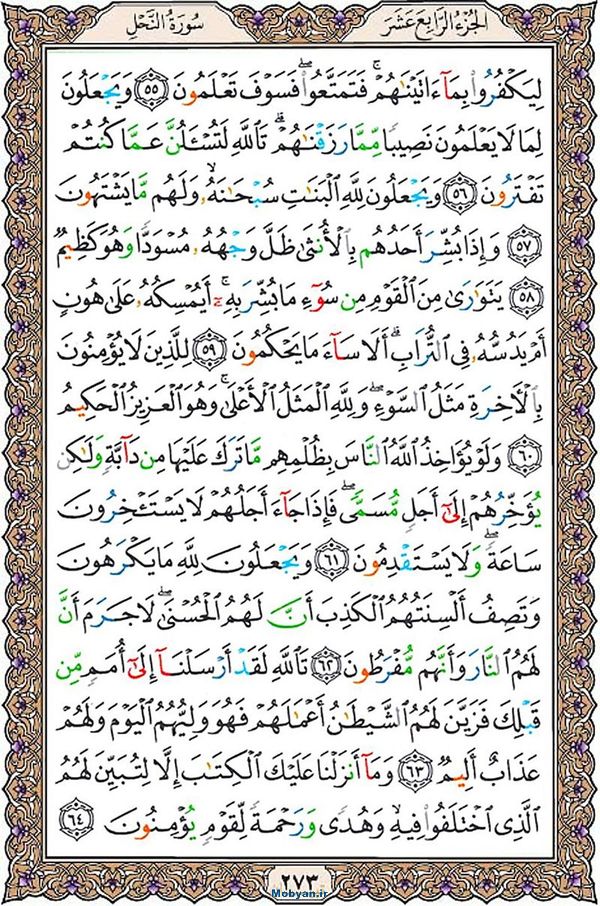 الجُزءُ الرَّابِعَ عَشَرَ
سُورَةُ النَّحْلِ
لِيَكْفُرُوا۟ بِمَآ ءَاتَيْنَٰهُمْ ۚ فَتَمَتَّعُوا۟ ۖ فَسَوْفَ تَعْلَمُونَ ٥٥ وَيَجْعَلُونَ
لِمَا لَا يَعْلَمُونَ نَصِيبًا مِّمَّا رَزَقْنَٰهُمْ ۗ تَٱللَّهِ لَتُسْـَٔلُنَّ عَمَّا كُنتُمْ
تَفْتَرُونَ ٥٦ وَيَجْعَلُونَ لِلَّهِ ٱلْبَنَٰتِ سُبْحَٰنَهُۥ ۙ وَلَهُم مَّا يَشْتَهُونَ
٥٧ وَإِذَا بُشِّرَ أَحَدُهُم بِٱلْأُنثَىٰ ظَلَّ وَجْهُهُۥ مُسْوَدًّا وَهُوَ كَظِيمٌ
٥٨ يَتَوَٰرَىٰ مِنَ ٱلْقَوْمِ مِن سُوٓءِ مَا بُشِّرَ بِهِۦٓ ۚ أَيُمْسِكُهُۥ عَلَىٰ هُونٍ
أَمْ يَدُسُّهُۥ فِى ٱلتُّرَابِ ۗ أَلَا سَآءَ مَا يَحْكُمُونَ ٥٩ لِلَّذِينَ لَا يُؤْمِنُونَ
بِٱلْـَٔاخِرَةِ مَثَلُ ٱلسَّوْءِ ۖ وَلِلَّهِ ٱلْمَثَلُ ٱلْأَعْلَىٰ ۚ وَهُوَ ٱلْعَزِيزُ ٱلْحَكِيمُ
٦٠ وَلَوْ يُؤَاخِذُ ٱللَّهُ ٱلنَّاسَ بِظُلْمِهِم مَّا تَرَكَ عَلَيْهَا مِن دَآبَّةٍ وَلَٰكِن
يُؤَخِّرُهُمْ إِلَىٰٓ أَجَلٍ مُّسَمًّى ۖ فَإِذَا جَآءَ أَجَلُهُمْ لَا يَسْتَـْٔخِرُونَ
سَاعَةً ۖ وَلَا يَسْتَقْدِمُونَ ٦١ وَيَجْعَلُونَ لِلَّهِ مَا يَكْرَهُونَ
وَتَصِفُ أَلْسِنَتُهُمُ ٱلْكَذِبَ أَنَّ لَهُمُ ٱلْحُسْنَىٰ ۖ لَا جَرَمَ أَنَّ
لَهُمُ ٱلنَّارَ وَأَنَّهُم مُّفْرَطُونَ ٦٢ تَٱللَّهِ لَقَدْ أَرْسَلْنَآ إِلَىٰٓ أُمَمٍ مِّن
قَبْلِكَ فَزَيَّنَ لَهُمُ ٱلشَّيْطَٰنُ أَعْمَٰلَهُمْ فَهُوَ وَلِيُّهُمُ ٱلْيَوْمَ وَلَهُمْ
عَذَابٌ أَلِيمٌ ٦٣ وَمَآ أَنزَلْنَا عَلَيْكَ ٱلْكِتَٰبَ إِلَّا لِتُبَيِّنَ لَهُمُ
ٱلَّذِى ٱخْتَلَفُوا۟ فِيهِ ۙ وَهُدًى وَرَحْمَةً لِّقَوْمٍ يُؤْمِنُونَ ٦٤
٢٧٣
Mobyan.ir